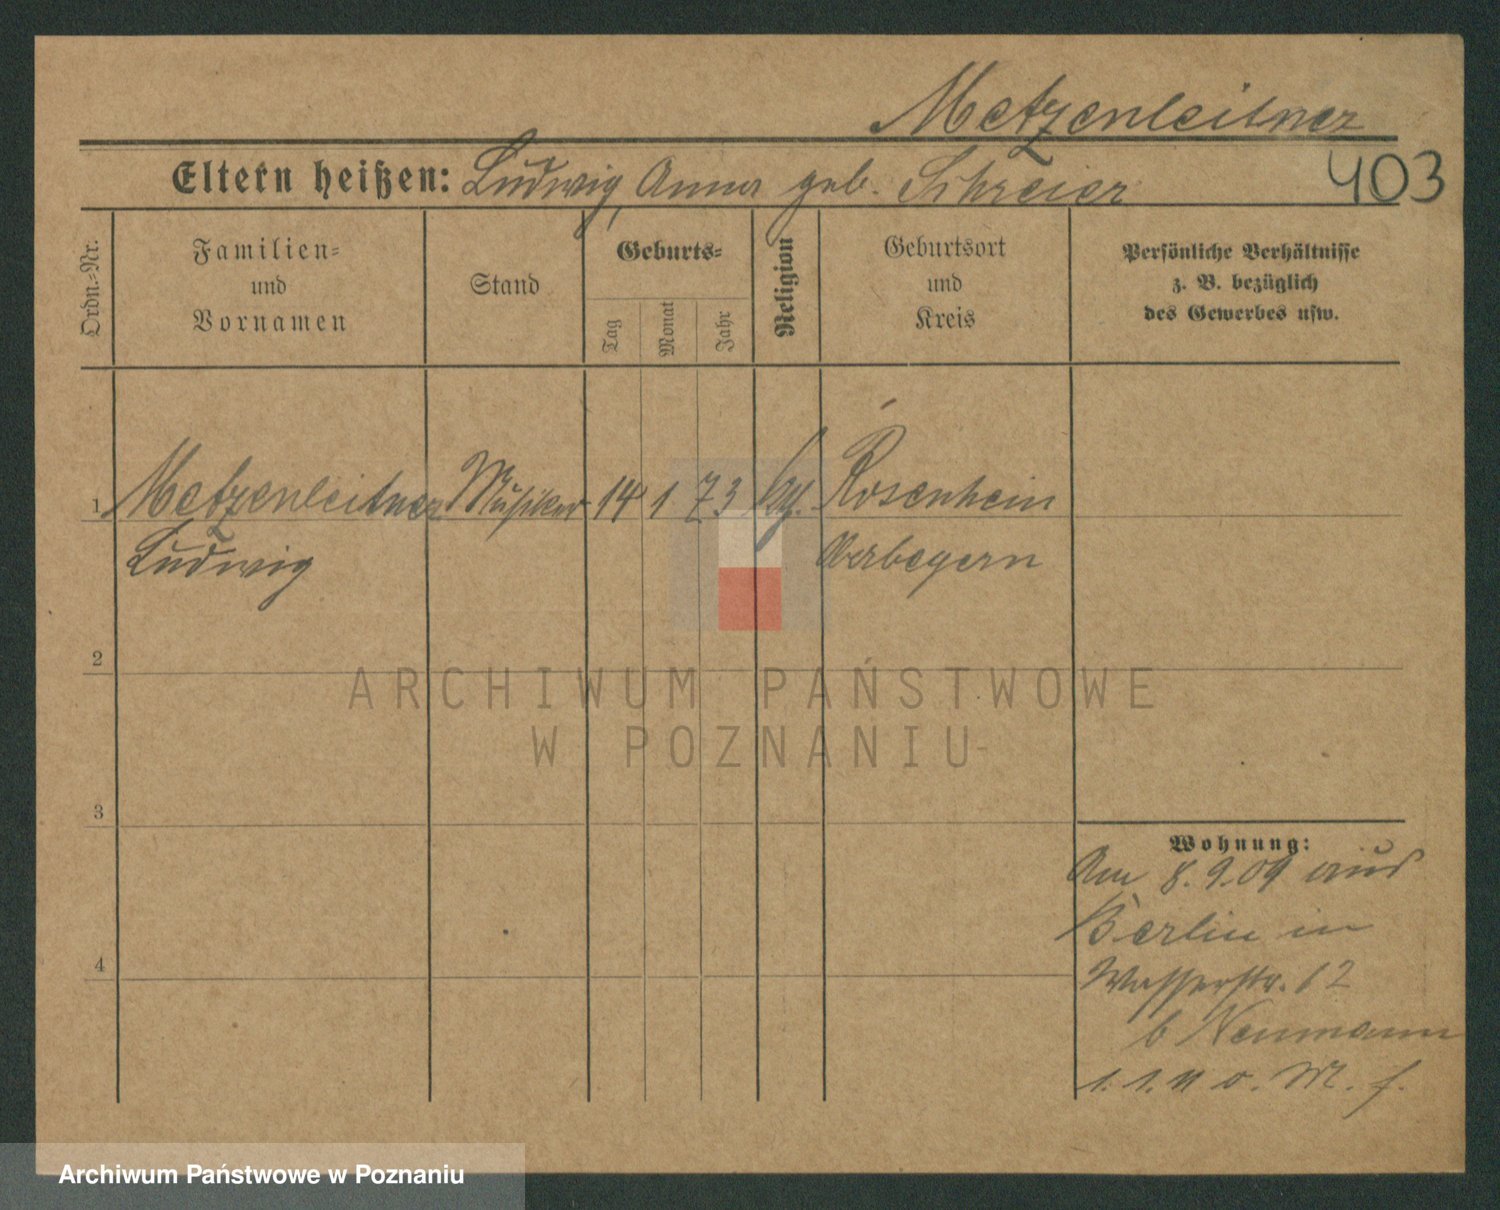 Metzenleitner
403
Eltern heißen: Ludwig, Anna geb. Schreier
Ordn.-Nr.
Familien-
und
Vornamen
Stand
Geburts-
Tag
Monat
Jahr
Religion
Geburtsort
und
Kreis
Persönliche Verhältnisse
z. B. bezüglich
des Gewerbes usw.
1 Metzenleitner Musiker 14 1 73 Rosenheim
Ludwig
2
3
4
ARCHIWUM PAŃSTWOWE
W POZNANIU
Wohnung:
Am 8.9.09 aus
Berlin in
Wasserstr. 12
b Neumann
1. 1. 11 o. M. f.
Archiwum Państwowe w Poznaniu